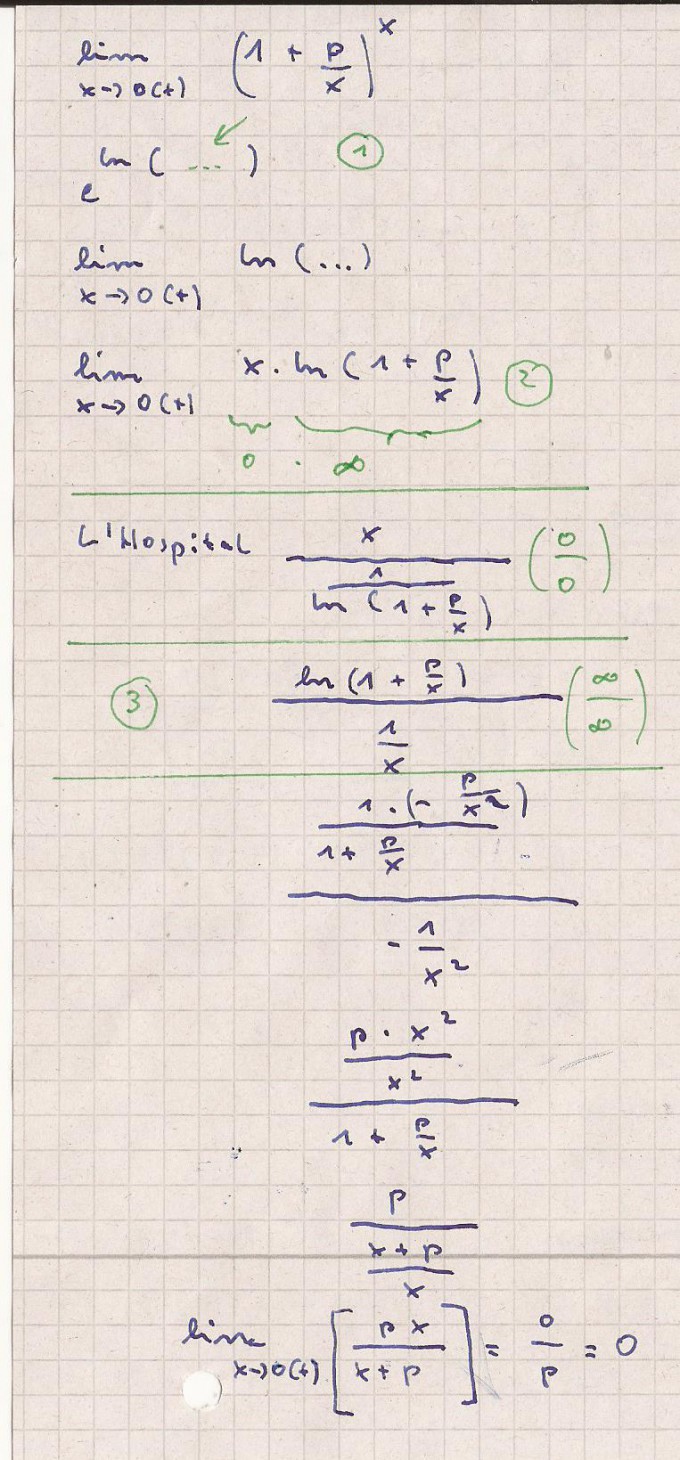 lim x→0(+) (1 + p/x)^x
e^ln(...) ①
lim x→0(+) ln(...)
lim x→0(+) x · ln(1 + p/x) ②
0 · ∞
L'Hospital x / (1 / ln(1 + p/x)) (0/0)
③ ln(1 + p/x) / (1/x) (∞/∞)
(1 · (- p/x²) / (1 + p/x)) / (- 1/x²)
(p · x² / x²) / (1 + p/x)
p / ((x + p) / x)
lim x→0(+) [p x / (x + p)] = 0/p = 0